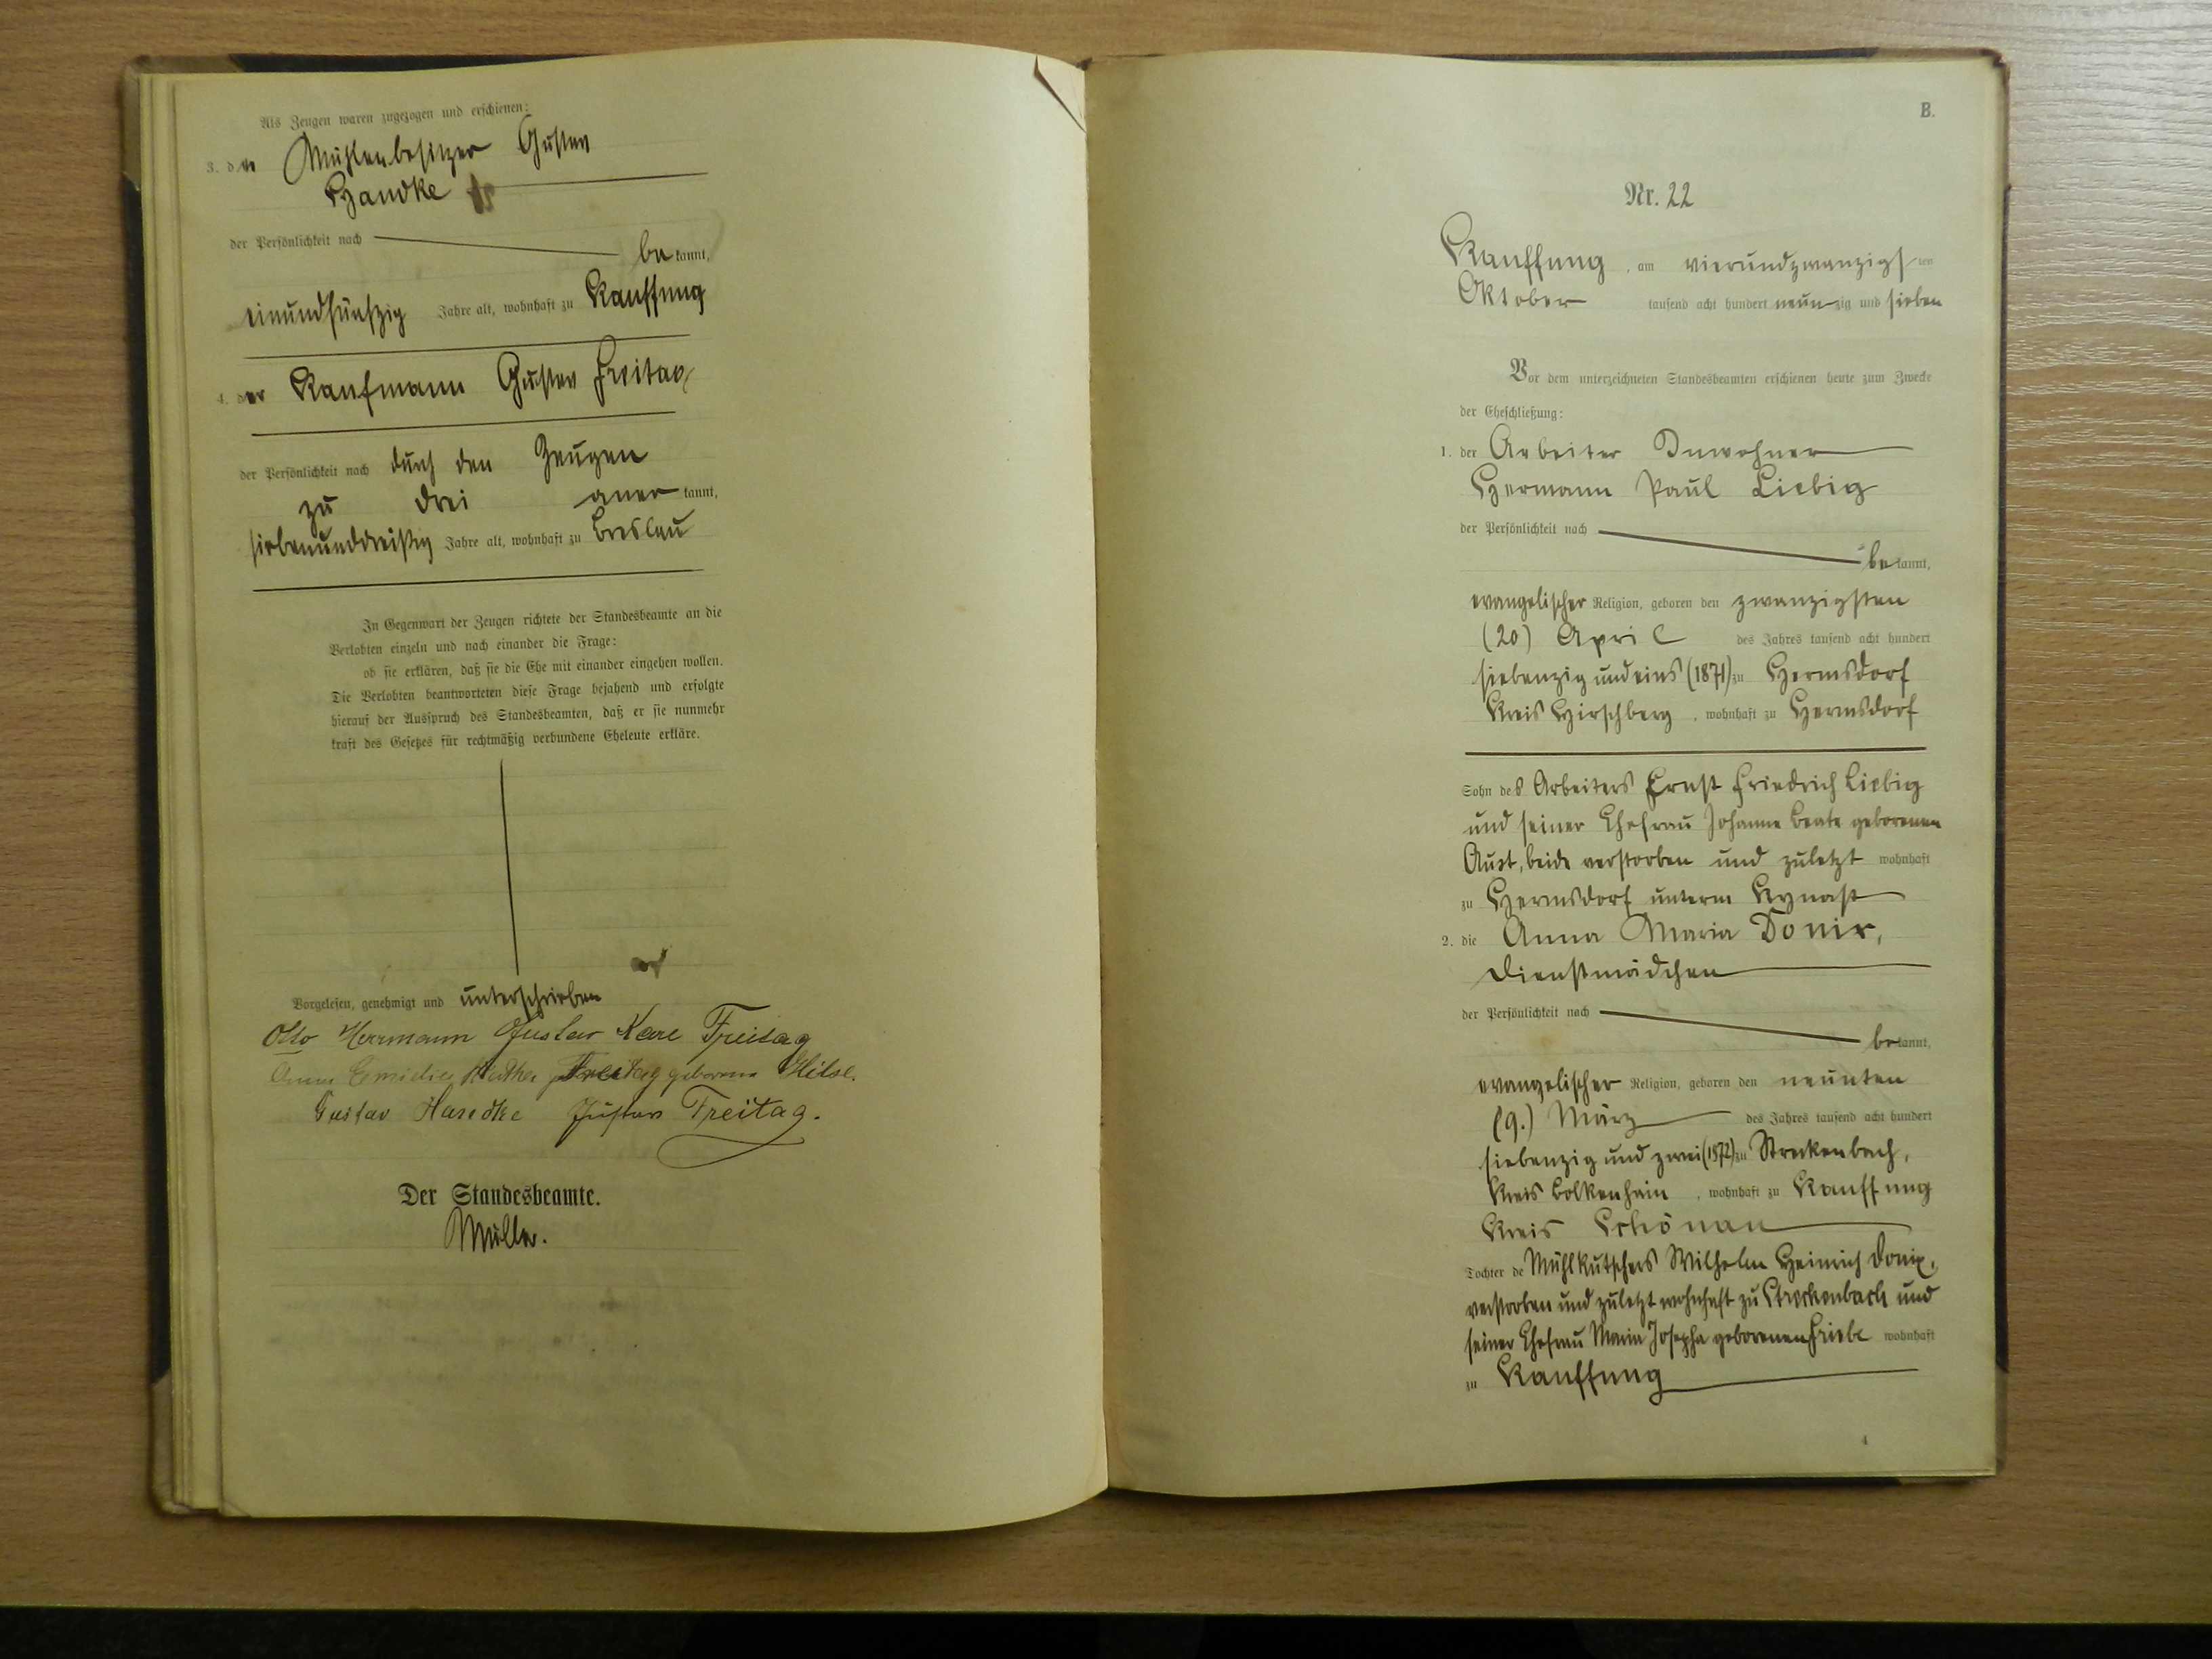 Als Zeugen waren zugezogen und erschienen:
3. der Mühlenbesitzer Gustav
Handke
der Persönlichkeit nach
be kannt,
einundfünfzig Jahre alt, wohnhaft zu Kauffung
4. der Kaufmann Gustav Freitag
der Persönlichkeit nach durch den Zeugen
zu drei aner kannt,
siebenunddreißig Jahre alt, wohnhaft zu Breslau
In Gegenwart der Zeugen richtete der Standesbeamte an die
Verlobten einzeln und nach einander die Frage:
ob sie erklären, daß sie die Ehe mit einander eingehen wollen.
Die Verlobten beantworteten diese Frage bejahend und erfolgte
hierauf der Ausspruch des Standesbeamten, daß er sie nunmehr
kraft des Gesetzes für rechtmäßig verbundene Eheleute erkläre.
Vorgelesen, genehmigt und unterschrieben
Otto Herrmann Gustav Karl Freitag
Anna Emilie Freitag geborene Hilse.
Gustav Handke Gustav Freitag.
Der Standesbeamte.
Müller.
B.
Nr. 22
Kauffung, am vierundzwanzigsten
Oktober tausend acht hundert neunzig und sieben
Vor dem unterzeichneten Standesbeamten erschienen heute zum Zwecke
der Eheschließung:
1. der Arbeiter Inwohner
Hermann Paul Liebig
der Persönlichkeit nach
be kannt,
evangelischer Religion, geboren den zwanzigsten
(20) April des Jahres tausend acht hundert
siebenzig und eins (1871) zu Hermsdorf
Kreis Hirschberg, wohnhaft zu Hermsdorf
Sohn des Arbeiters Ernst Friedrich Liebig
und seiner Ehefrau Johanne Beate geborenen
Aust, beide verstorben und zuletzt wohnhaft
zu Hermsdorf unterm Kynast
2. die Anna Maria Donix,
Dienstmädchen
der Persönlichkeit nach
be kannt,
evangelischer Religion, geboren den neunten
(9.) März des Jahres tausend acht hundert
siebenzig und zwei (1872) zu Streckenbach,
Kreis Bolkenhain, wohnhaft zu Kauffung
Kreis Schönau
Tochter de Mühlkutschers Wilhelm Heinrich Donix,
verstorben und zuletzt wohnhaft zu Streckenbach und
seiner Ehefrau Maria Josepha geborenen Friebe wohnhaft
zu Kauffung
4